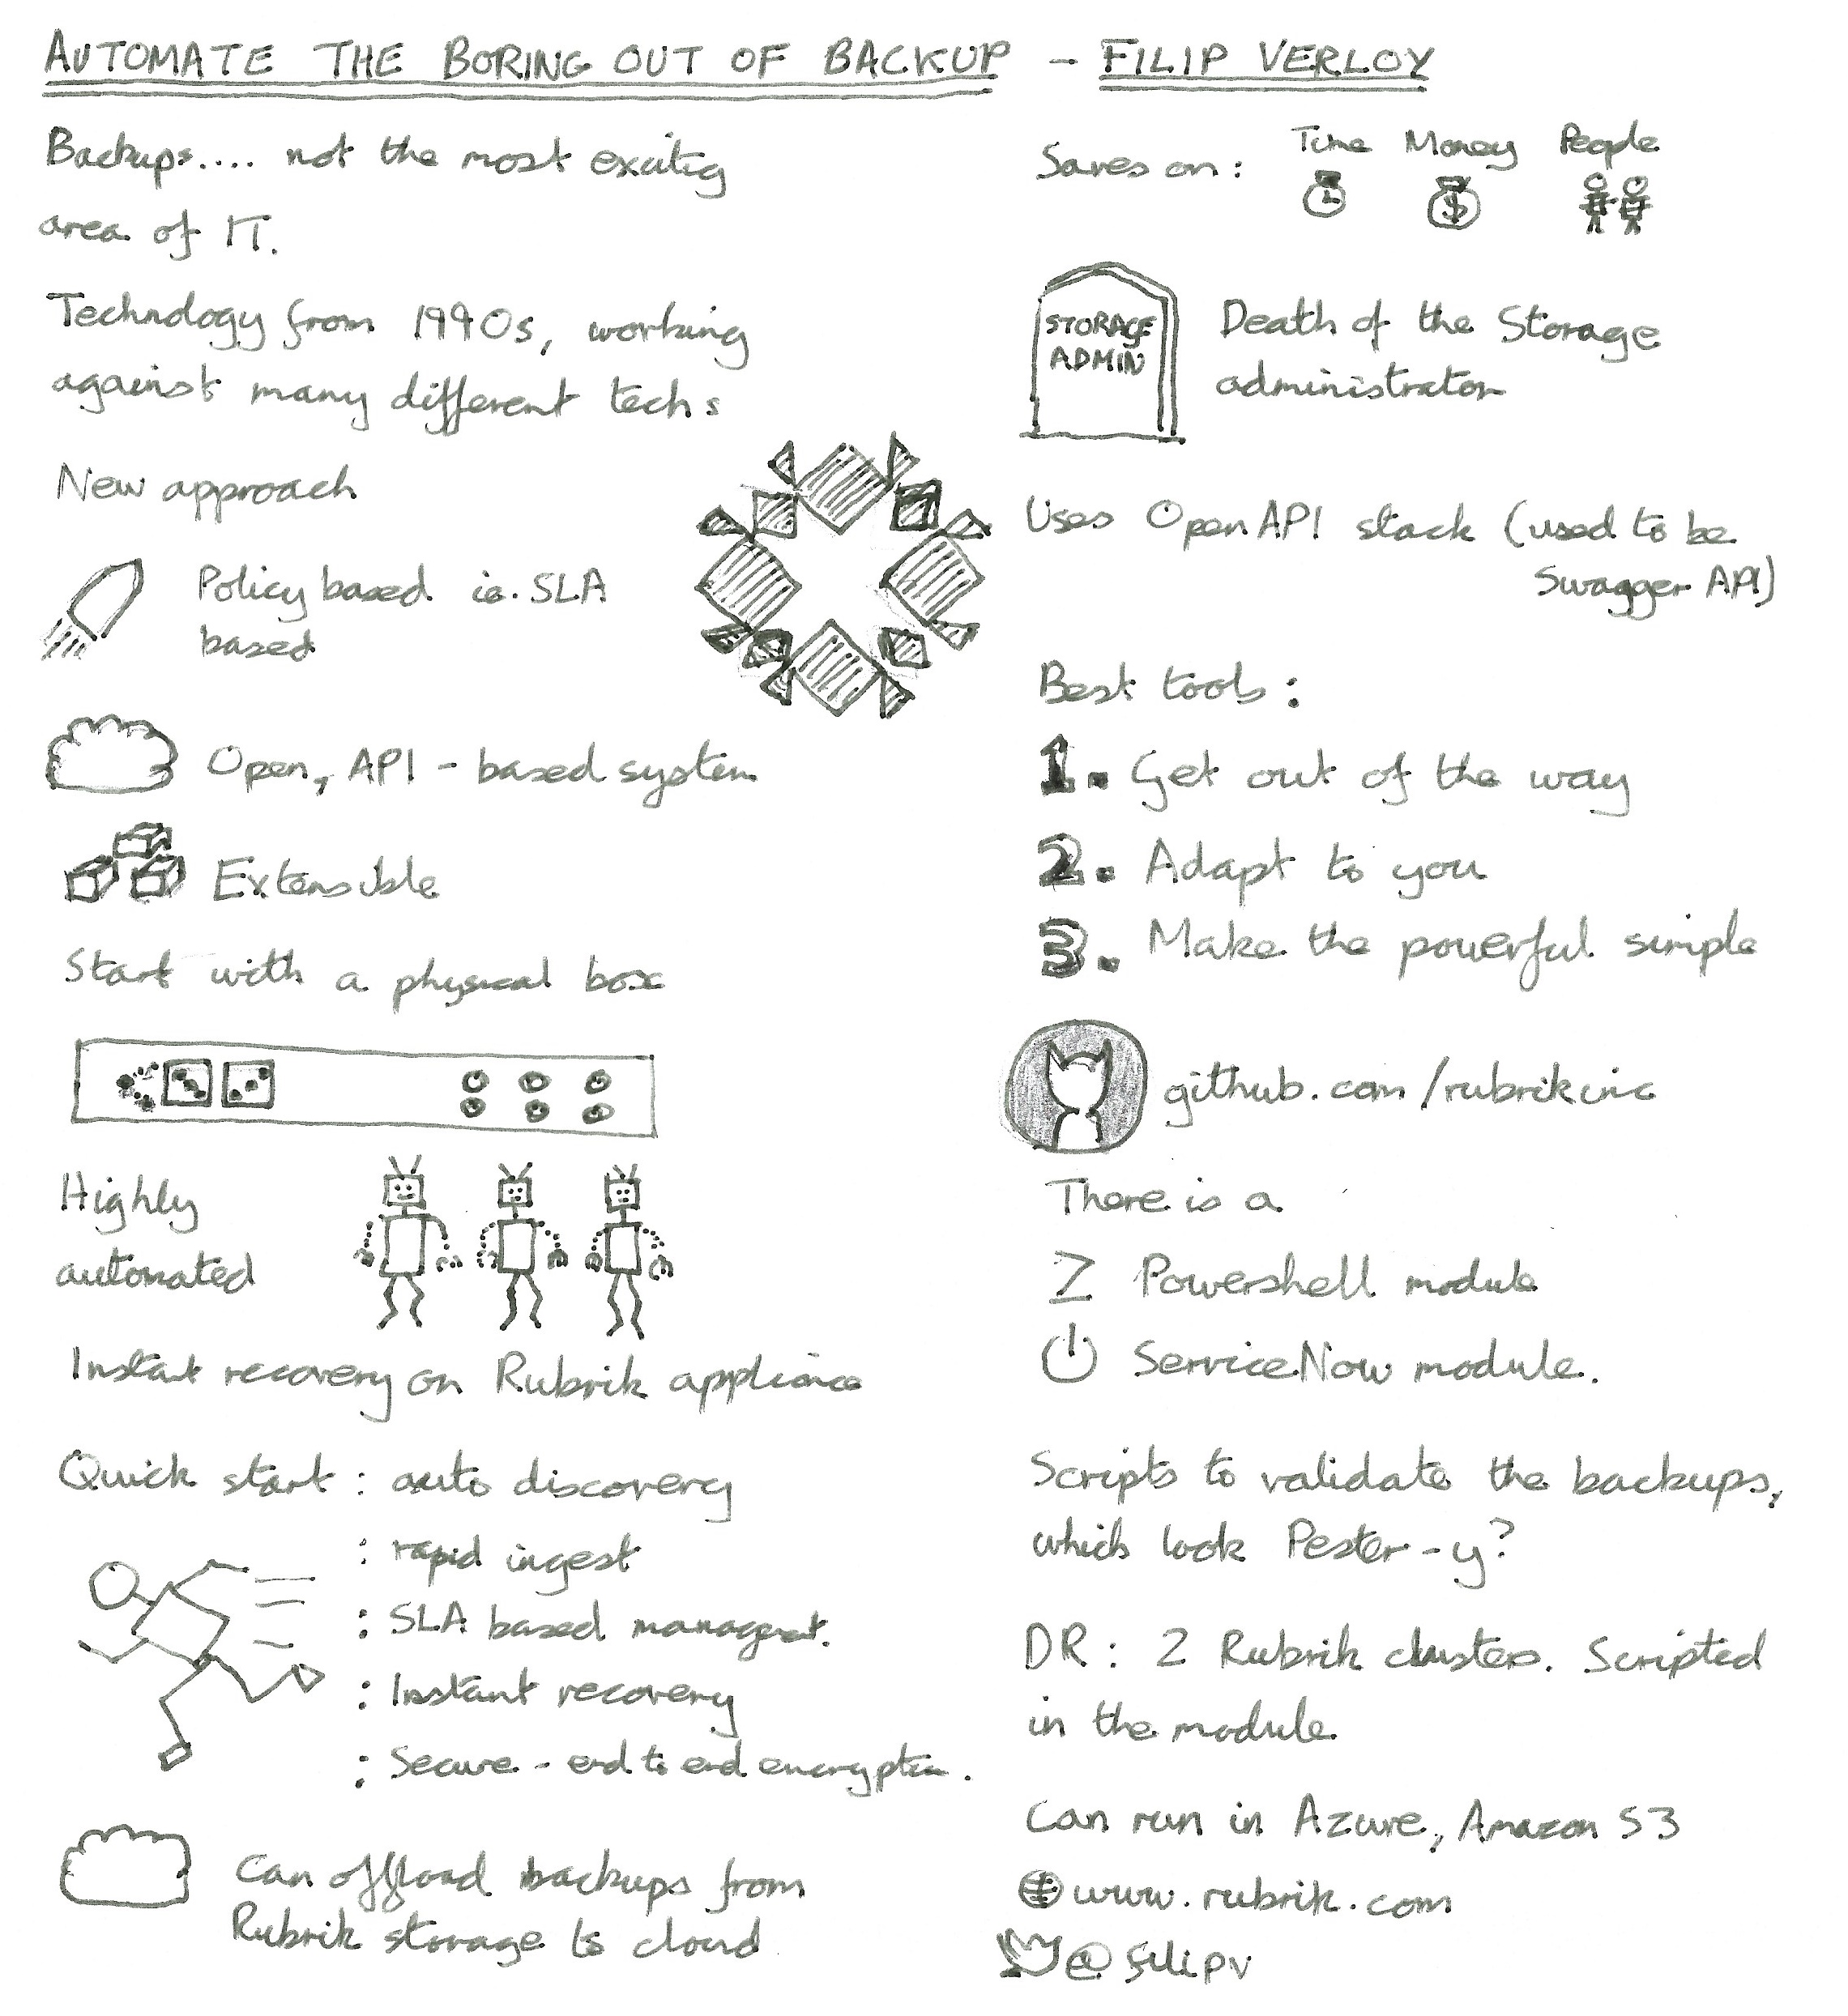 AUTOMATE THE BORING OUT OF BACKUP - FILIP VERLOY
Backups.... not the most exciting
area of IT.
Technology from 1990s, working
against many different techs
New approach
Policy based ie. SLA
based
Open, API - based system
Extensible
Start with a physical box
Highly
automated
Instant recovery on Rubrik appliance
Quick start : auto discovery
: rapid ingest
: SLA based managemt.
: Instant recovery
: Secure - end to end encryption.
Can offload backups from
Rubrik storage to cloud
Saves on : Time Money People
$
STORAGE
ADMIN
Death of the Storage
administrator
Uses OpenAPI stack (used to be
Swagger API)
Best tools :
1. Get out of the way
2. Adapt to you
3. Make the powerful simple
github.com/rubrikinc
There is a
Powershell module
ServiceNow module.
Scripts to validate the backups,
which look Pester-y?
DR : 2 Rubrik clusters. Scripted
in the module.
Can run in Azure, Amazon S3
www.rubrik.com
@filipv